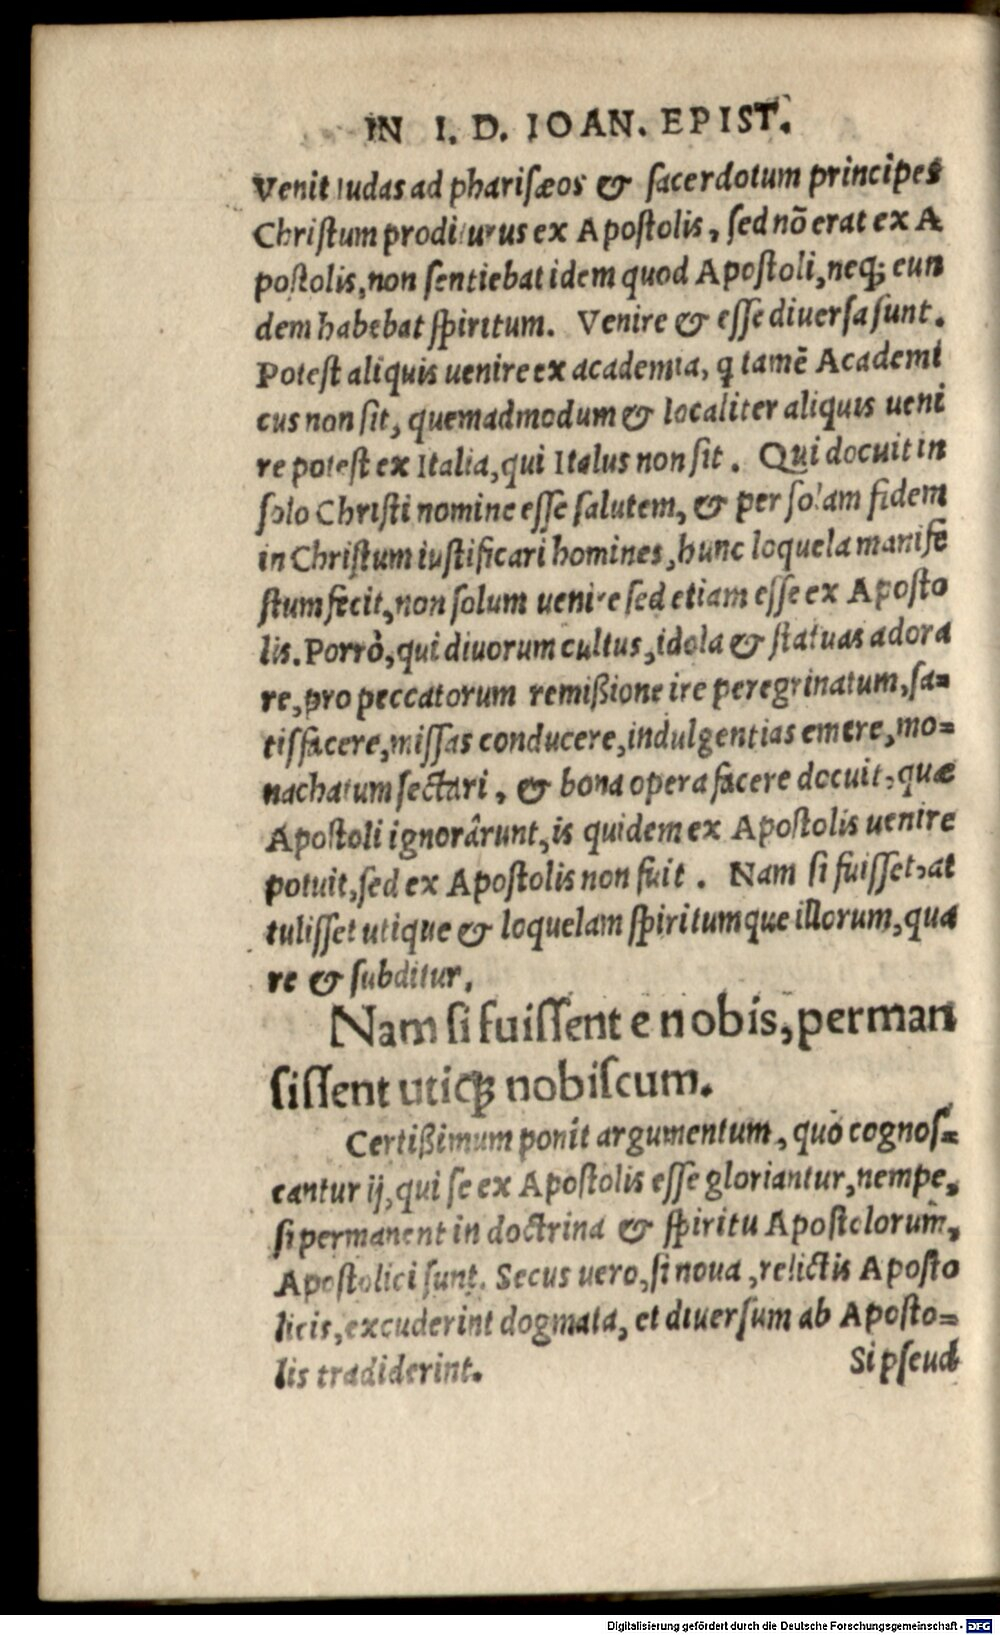 IN I. D. IOAN. EPIST.
Venit Iudas ad pharisæos & sacerdotum principes
Christum proditurus ex Apostolis, sed nõ erat ex A
postolis, non sentiebat idem quod Apostoli, neq; eun
dem habebat spiritum. Venire & esse diuersa sunt.
Potest aliquis uenire ex academia, q tamẽ Academi
cus non sit, quemadmodum & localiter aliquis ueni
re potest ex Italia, qui Italus non sit. Qui docuit in
solo Christi nomine esse salutem, & per solam fidem
in Christum iustificari homines, hunc loquela manife
stum fecit, non solum uenire sed etiam esse ex Aposto
lis. Porrò, qui diuorum cultus, idola & statuas adora
re, pro peccatorum remißione ire peregrinatum, sa=
tisfacere, missas conducere, indulgentias emere, mo=
nachatum sectari, & bona opera facere docuit, quæ
Apostoli ignorârunt, is quidem ex Apostolis uenire
potuit, sed ex Apostolis non fuit. Nam si fuisset, at
tulisset utique & loquelam spiritumque illorum, qua
re & subditur.
Nam si fuissent e nobis, perman
sissent utiq; nobiscum.
Certißimum ponit argumentum, quo cognos=
cantur ij, qui se ex Apostolis esse gloriantur, nempe,
si permanent in doctrina & spiritu Apostolorum,
Apostolici sunt. Secus uero, si noua, relictis Aposto
licis, excuderint dogmata, et diuersum ab Aposto=
lis tradiderint.
Si pseud
Digitalisierung gefördert durch die Deutsche Forschungsgemeinschaft - DFG